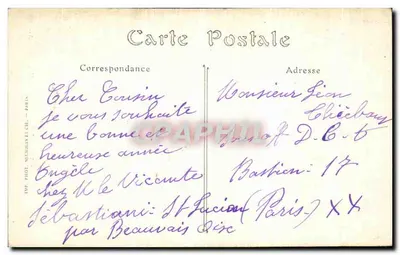 Carte Postale
Correspondance
Cher Cousin
je vous souhaite
une bonne et
heureuse année
Angèle
chez M le Vicomte
Sébastiani St Lucien
par Beauvais Oise
Adresse
Monsieur Léon
D. C. A
Bastion 17
(Paris) XX